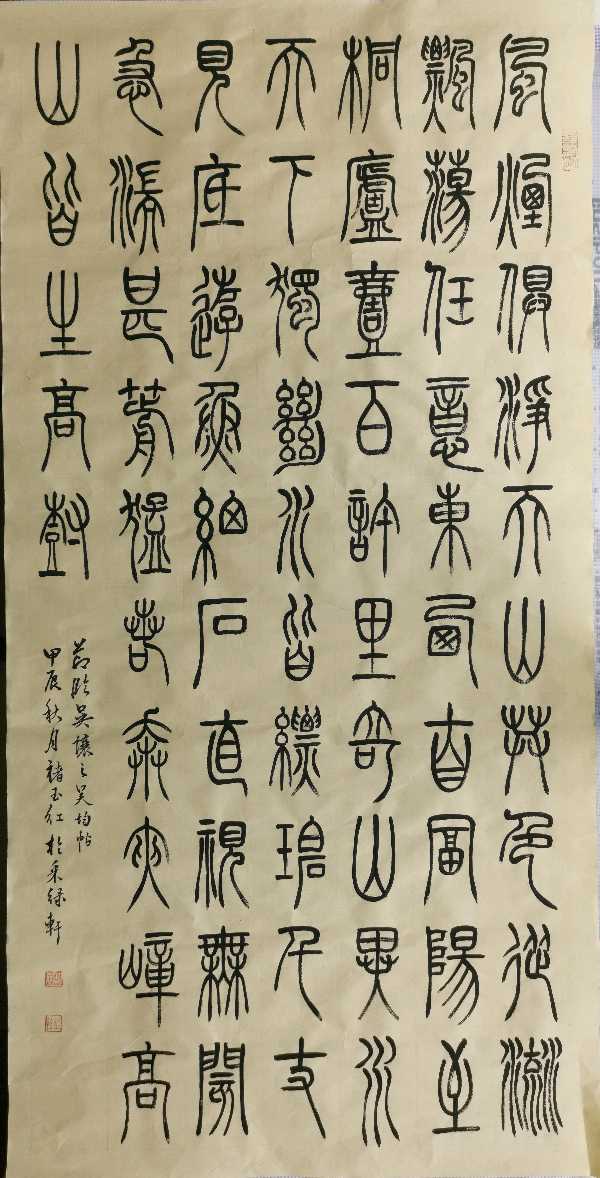 風煙俱淨天山共色從流
飄蕩任意東西自富陽至
桐廬壹百許里奇山異水
天下獨絕水皆縹碧千丈
見底遊魚細石直視無閡
急湍甚箭猛若奔夾嶂高
山皆生高樹
節臨吳讓之吳均帖
甲辰秋月褚玉红於采綠軒